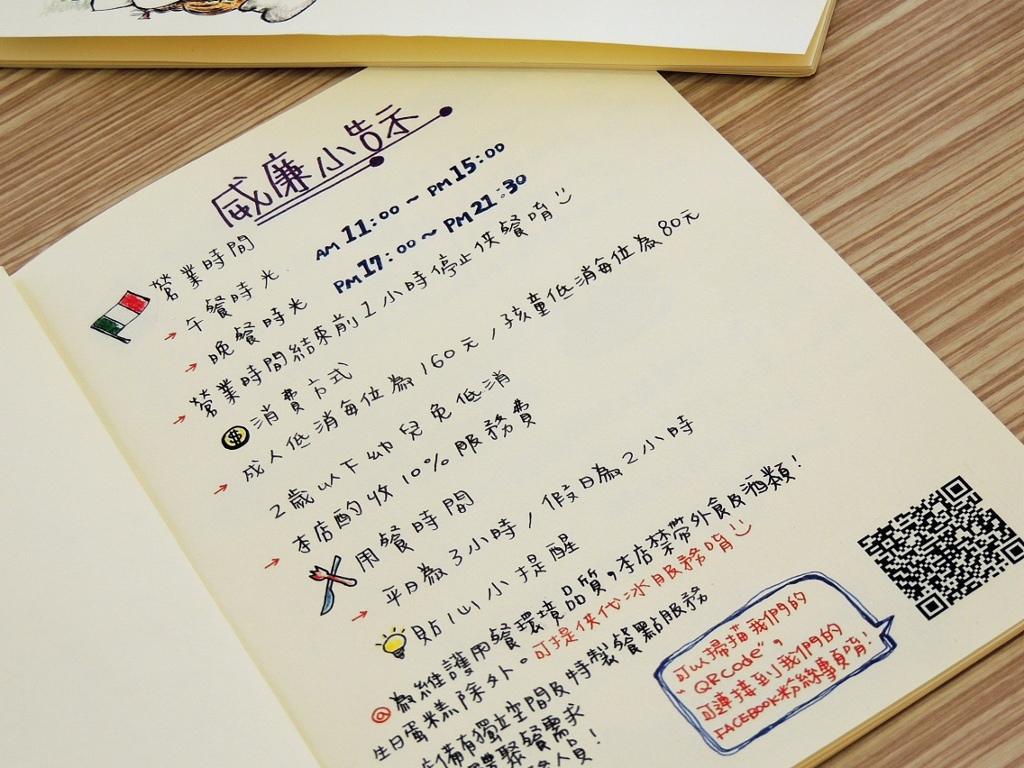 威廉小告示
營業時間
午餐時光 AM 11:00 ~ PM 15:00
晚餐時光 PM 17:00 ~ PM 21:30
營業時間結束前1小時停止供餐唷
消費方式
成人低消每位為160元/孩童低消每位為80元
2歲以下幼兒免低消
本店酌收10%服務費
用餐時間
平日為3小時/假日為2小時
貼心小提醒
@為維護用餐環境品質,本店禁帶外食及酒類!
生日蛋糕除外。可提供代冰服務唷
備有獨立空間及特製餐點服務
聚餐需求
人員!
可以掃描我們的
"QRCode",
可連接到我們的
FACEBOOK粉絲專頁唷!